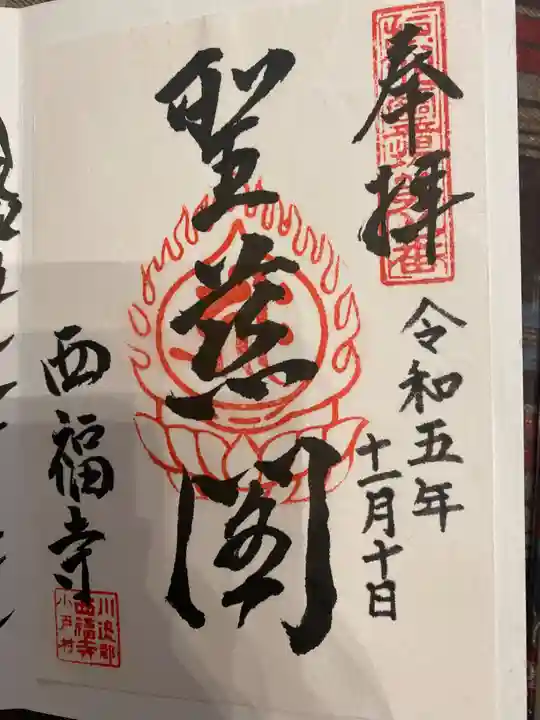 奉拝
令和五年
十一月十日
聖慈閣
西福寺
川辺郡
西福寺
小戸村